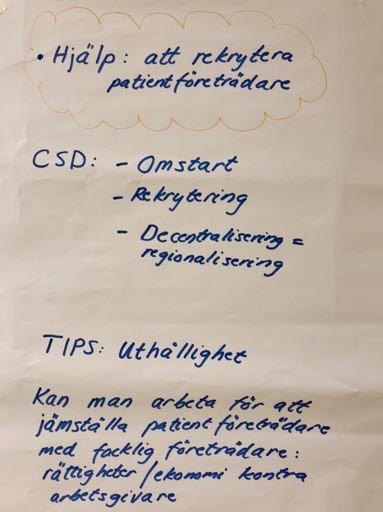 • Hjälp: att rekrytera
patientföreträdare
CSD: - Omstart
- Rekrytering
- Decentralisering =
regionalisering
TIPS: Uthållighet
Kan man arbeta för att
jämställa patientföreträdare
med facklig företrädare:
rättigheter/ekonomi kontra
arbetsgivare